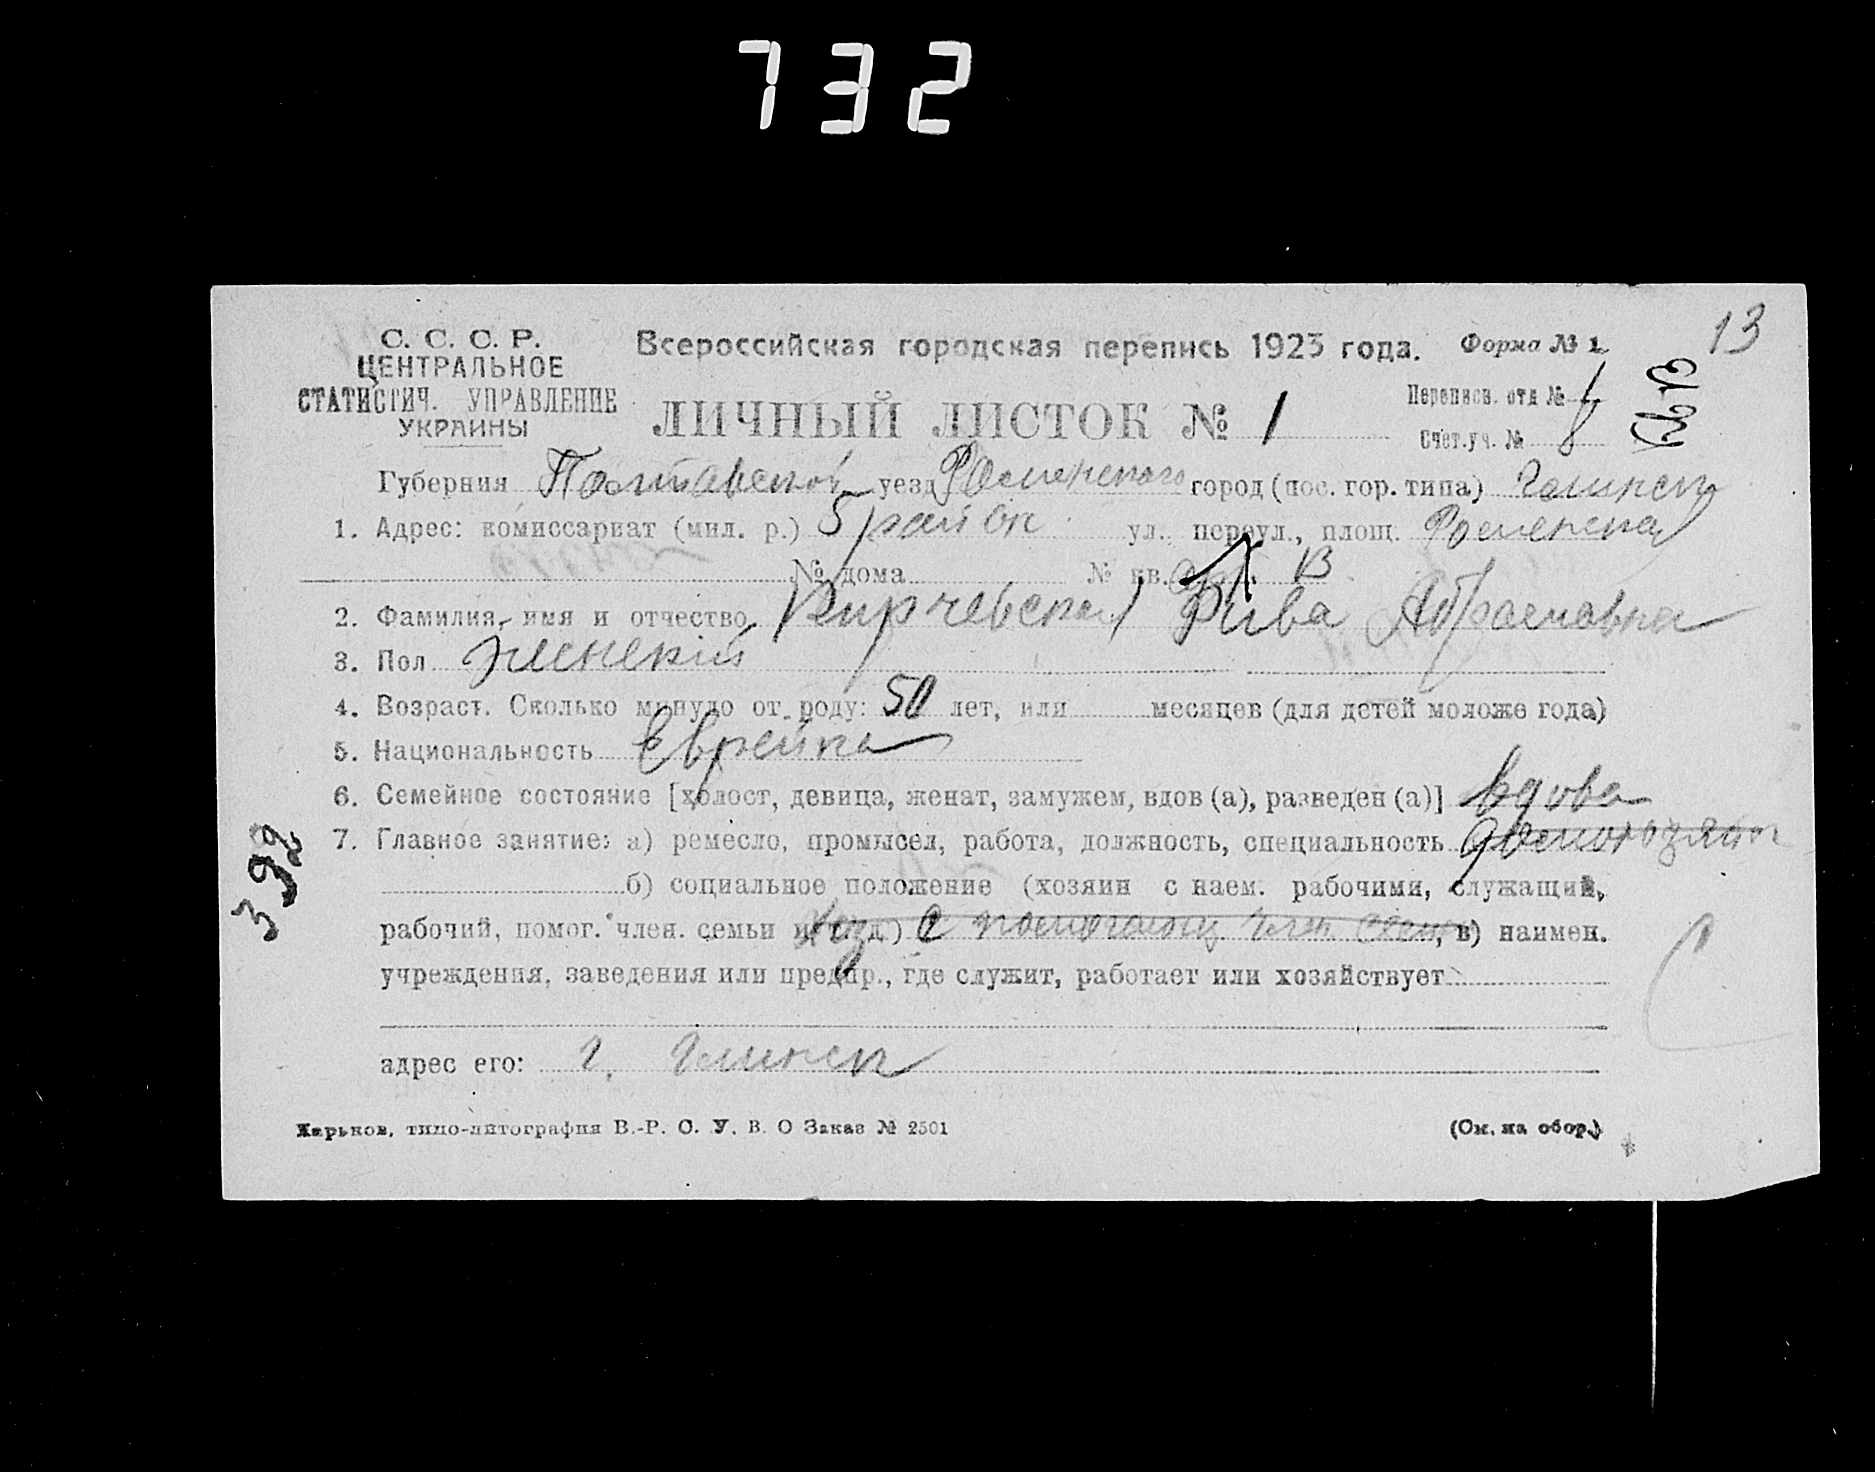 732
13
С. С. С. Р.
ЦЕНТРАЛЬНОЕ
СТАТИСТИЧ. УПРАВЛЕНИЕ
УКРАИНЫ
Всероссийская городская перепись 1923 года.
Форма № 1
ЛИЧНЫЙ ЛИСТОК № 1
Перепись. отд №
Счет.уч. № 8
Губерния Полтавской уезд Роменского город (пос. гор. типа) Глинск
1. Адрес: комиссариат (мил. р.) 5 район ул. переул., площ. Роменская
№ дома № кв. 13
2. Фамилия, имя и отчество Кирчевская Рива Абрамовна
3. Пол женский
4. Возраст. Сколько минуло от роду: 50 лет, или месяцев (для детей моложе года)
5. Национальность Еврейка
6. Семейное состояние [холост, девица, женат, замужем, вдов (а), разведен (а)] вдова
7. Главное занятие: а) ремесло, промысел, работа, должность, специальность домохозяйка
б) социальное положение (хозяин с наем. рабочими, служащий,
рабочий, помог. член. семьи и т. д.) с помогающ член семьи, в) наимен.
учреждения, заведения или предпр., где служит, работает или хозяйствует
адрес его: г. Глинск
332
Харьков, типо-литография В.-Р. С. У. В. О Заказ № 2501
(См. на обор.)